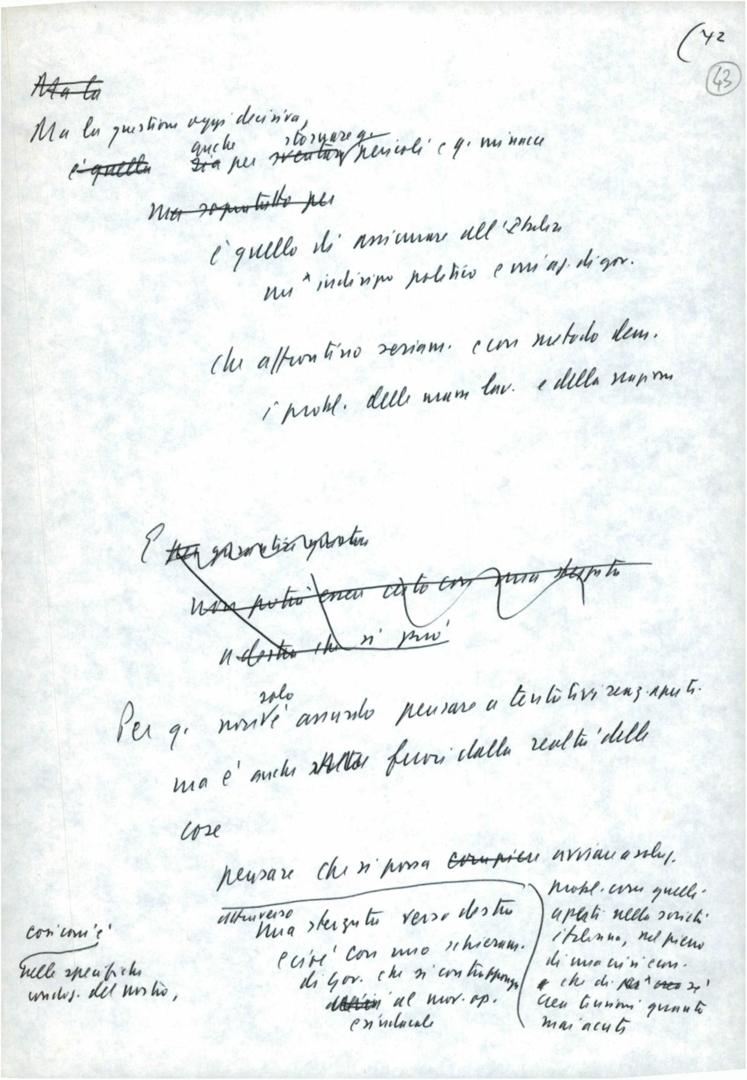 42
43
Ma la
Ma la questione oggi decisiva,
anche stornare q.
è quella sia per sventare pericoli e q. minacce
ma soprattutto per
è quello di assicurare all'Italia
un indirizzo politico e un'az. di gov.
che affrontino seriam. e con metodo dem.
i probl. delle masse lav. e della nazione
E
Non potrà esser certo con una sterzata
a destra che si può
solo
Per q. non è assurdo pensare a tentativi senz. aputi.
ma è anche fuori dalla realtà delle
cose
pensare che si possa compiere avviare a soluz.
probl. come quelli
aperti nella società
italiana, nel pieno
di una crisi econ.
e che di per sé
crea tensioni quanto
mai acute
attraverso
una sterzata verso destra
e cioè con uno schieram.
di Gov. che si contrapponga
al mov. op.
e sindacale
così com'è
nelle specifiche
condiz. del nostro,